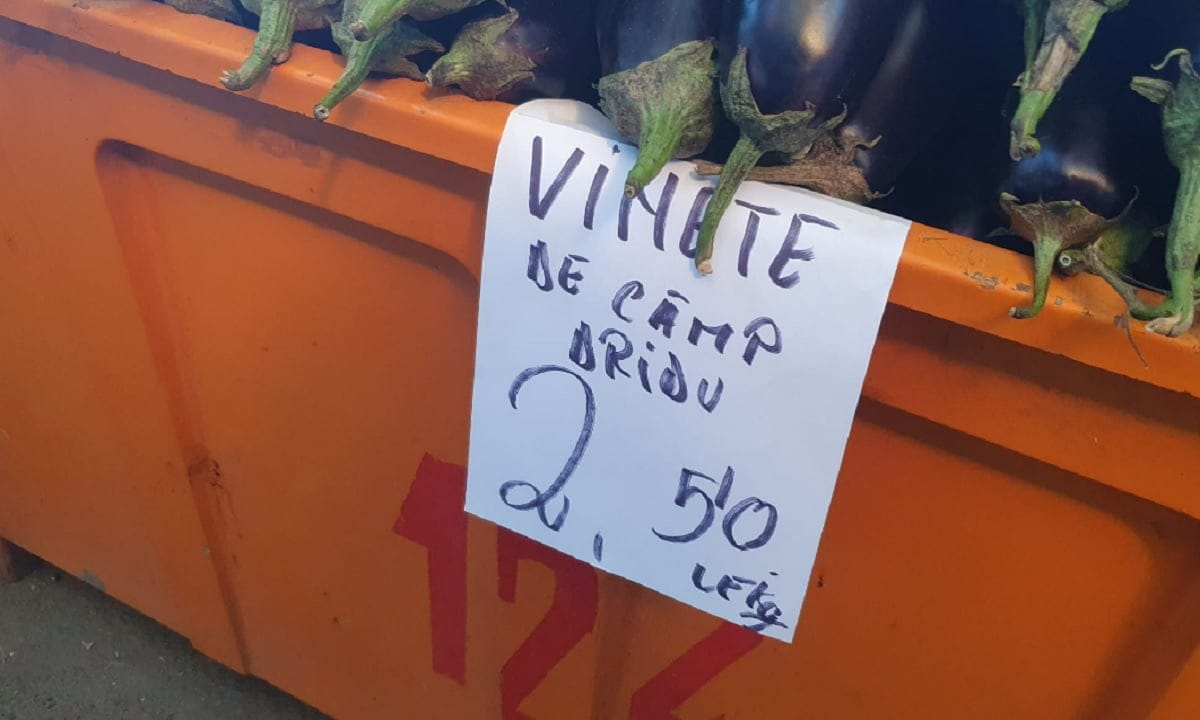 VINETE
DE CÂMP
DRIDU
2,50
LEI/kg
12